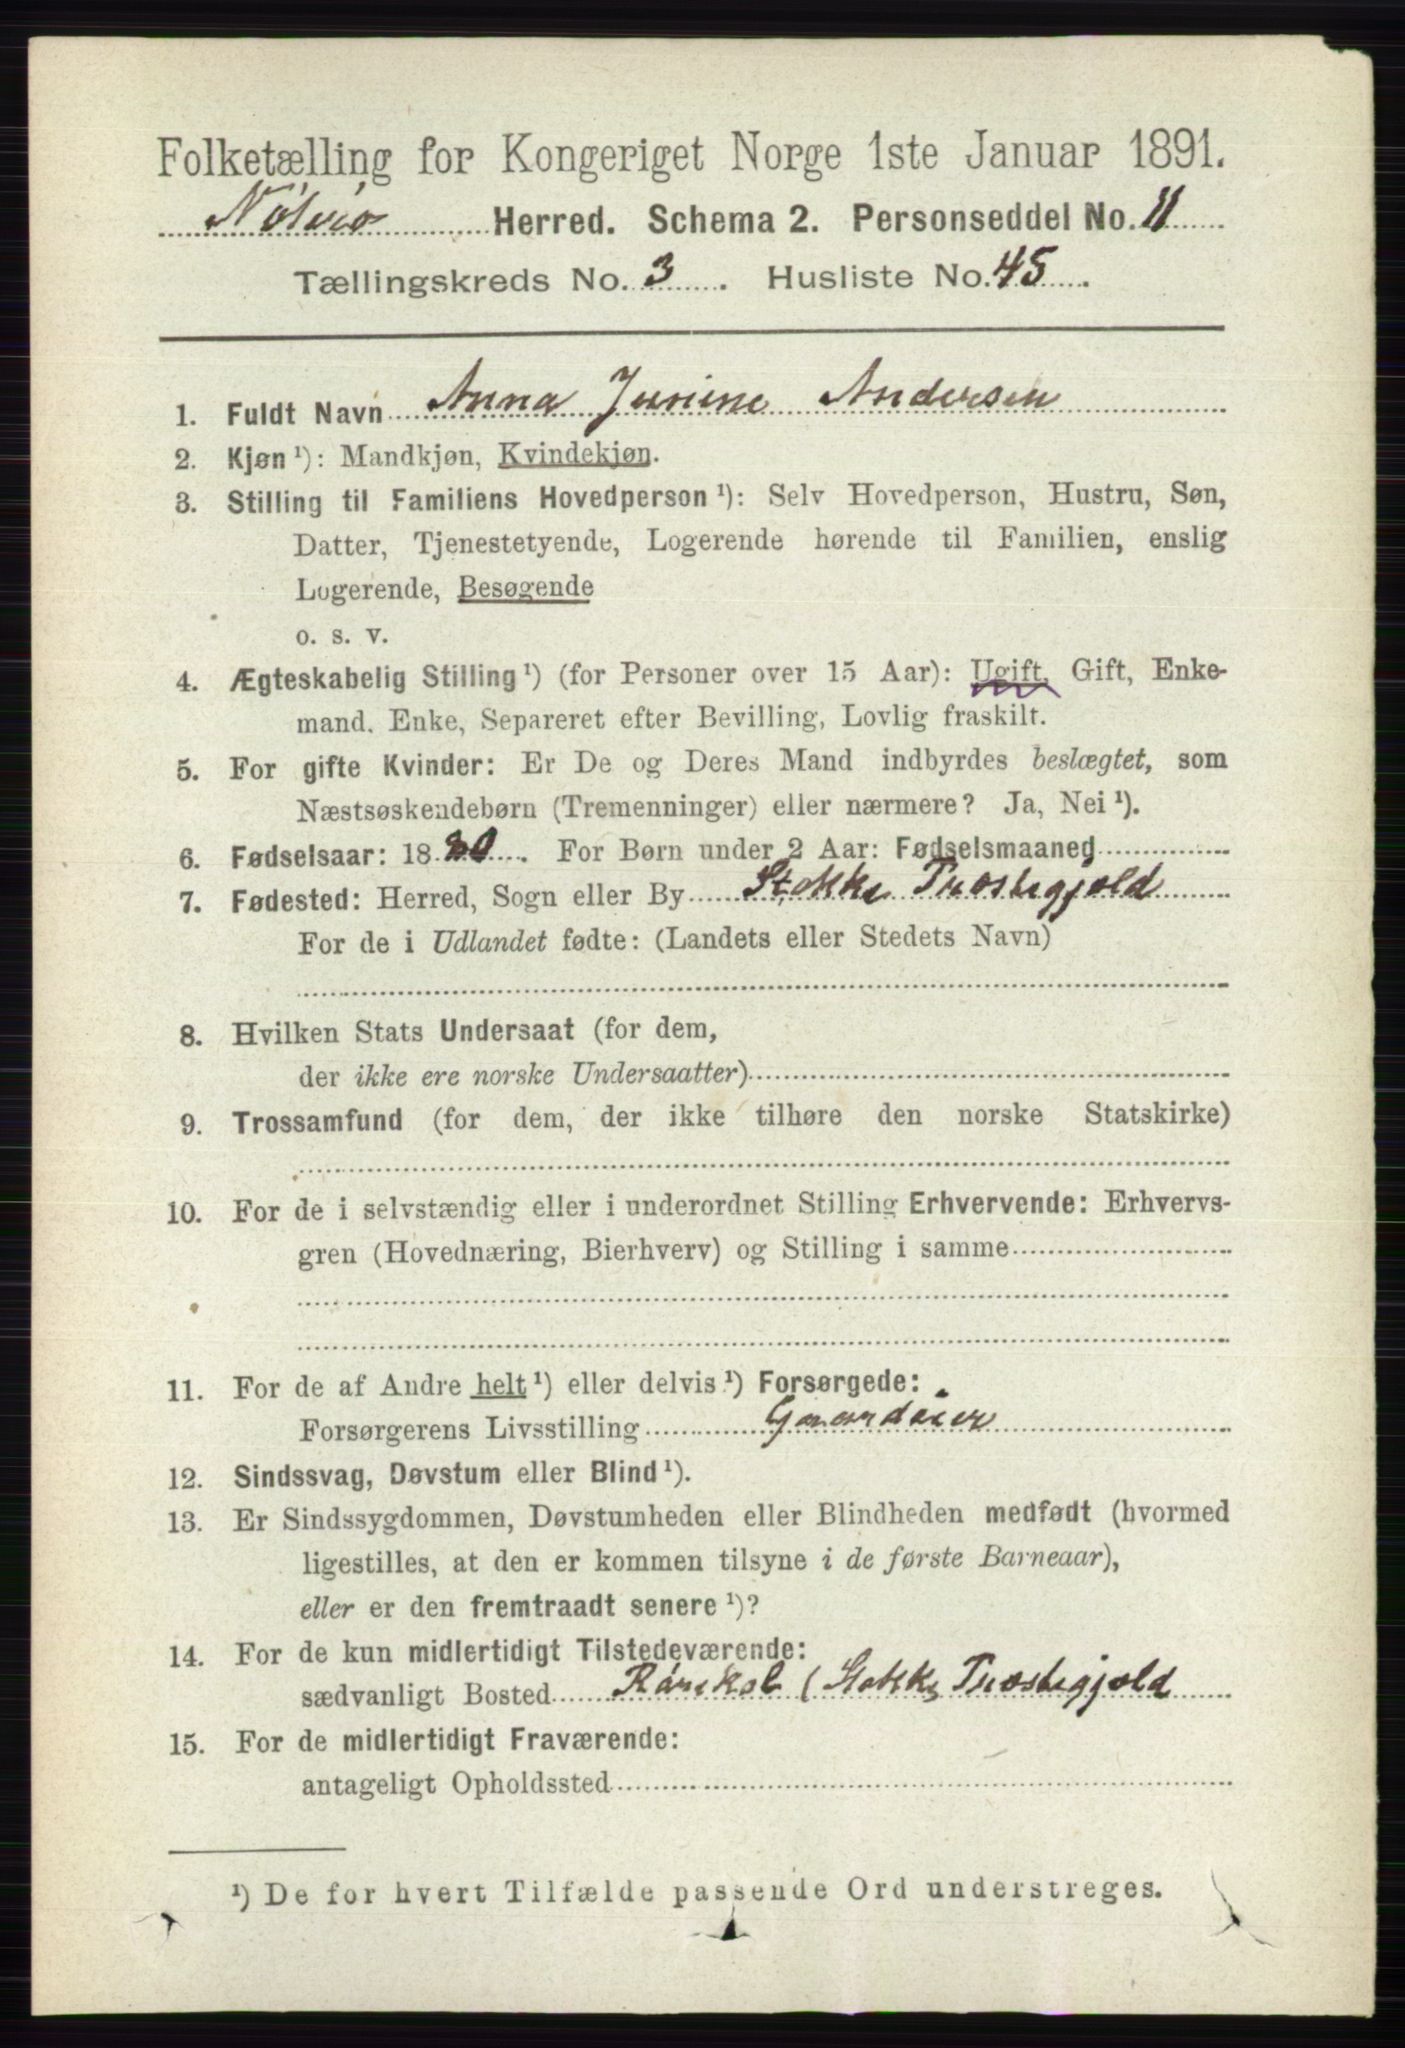 Folketælling for Kongeriget Norge 1ste Januar 1891.
Nøtterø Herred. Schema 2. Personseddel No. 11
Tællingskreds No. 3. Husliste No. 45.
1. Fuldt Navn Anna Junine Andersen
2. Kjøn ¹): Mandkjøn, Kvindekjøn.
3. Stilling til Familiens Hovedperson ¹): Selv Hovedperson, Hustru, Søn,
Datter, Tjenestetyende, Logerende hørende til Familien, enslig
Logerende, Besøgende
o. s. v.
4. Ægteskabelig Stilling ¹) (for Personer over 15 Aar): Ugift, Gift, Enke-
mand, Enke, Separeret efter Bevilling, Lovlig fraskilt.
5. For gifte Kvinder: Er De og Deres Mand indbyrdes beslægtet, som
Næstsøskendebørn (Tremenninger) eller nærmere? Ja, Nei ¹).
6. Fødselsaar: 18 . For Børn under 2 Aar: Fødselsmaaned
7. Fødested: Herred, Sogn eller By Stokke Præstegjeld
For de i Udlandet fødte: (Landets eller Stedets Navn)
8. Hvilken Stats Undersaat (for dem,
der ikke ere norske Undersaatter)
9. Trossamfund (for dem, der ikke tilhøre den norske Statskirke)
10. For de i selvstændig eller i underordnet Stilling Erhvervende: Erhvervs-
gren (Hovednæring, Bierhverv) og Stilling i samme
11. For de af Andre helt ¹) eller delvis ¹) Forsørgede:
Forsørgerens Livsstilling Gaardeier
12. Sindssvag, Døvstum eller Blind ¹).
13. Er Sindssygdommen, Døvstumheden eller Blindheden medfødt (hvormed
ligestilles, at den er kommen tilsyne i de første Barneaar),
eller er den fremtraadt senere ¹)?
14. For de kun midlertidigt Tilstedeværende:
sædvanligt Bosted ( Stokke Præstegjeld
15. For de midlertidigt Fraværende:
antageligt Opholdssted
¹) De for hvert Tilfælde passende Ord understreges.